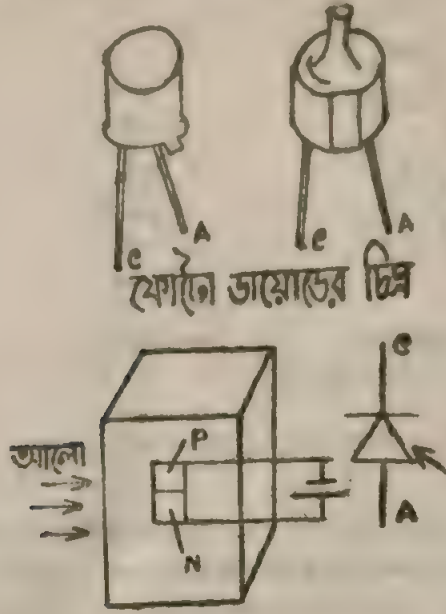 e A
e A
ফোটো ডায়োডের চিত্র
আলো
P
N
e
A